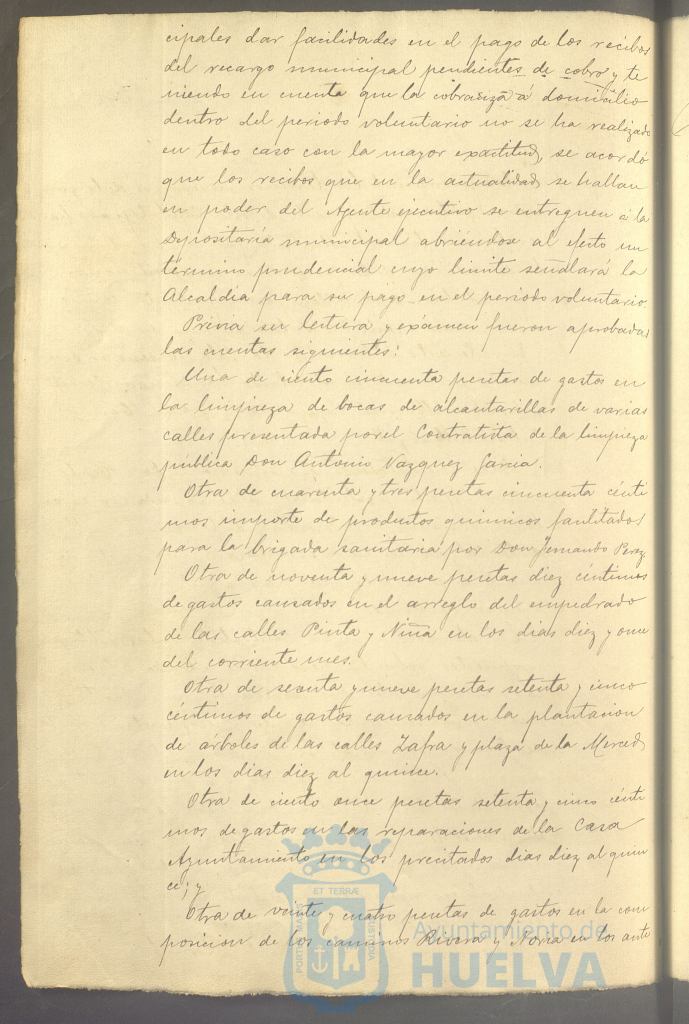 cipales dar facilidades en el pago de los recibos
del recargo municipal pendientes de cobro y te
niendo en cuenta que la cobranza á domicilio
dentro del periodo voluntario no se ha realizado
en todo caso con la mayor exactitud, se acordó
que los recibos que en la actualidad se hallan
en poder del Agente ejecutivo se entreguen á la
Depositaría municipal abriéndose al efecto un
término prudencial cuyo limite señalará la
Alcaldia para su pago en el periodo voluntario
Prévia su lectura y exámen fueron aprobadas
las cuentas siguientes:
Una de ciento cincuenta pesetas de gastos en
la limpieza de bocas de alcantarillas de varias
calles presentada por el Contratista de la limpieza
pública Don Antonio Vazquez Garcia.
Otra de cuarenta y tres pesetas cincuenta cénti
mos importe de productos quimicos facilitados
para la brigada sanitaria por Don Fernando Perez
Otra de noventa y nueve pesetas diez céntimos
de gastos causados en el arreglo del empedrado
de las calles Pinta y Niña en los dias diez y once
del corriente mes.
Otra de sesenta y nueve pesetas setenta y cinco
céntimos de gastos causados en la plantacion
de árboles de las calles Zafra y plaza de la Merced
en los dias diez al quince.
Otra de ciento once pesetas setenta y cinco cénti
mos de gastos en las reparaciones de la Casa
Ayuntamiento en los precitados dias diez al quin
ce; y
Otra de veinte y cuatro pesetas de gastos en la com
posicion de los caminos Rivera y Noria en los ante
ET TERRÆ
PORTUS MARIS
CUSTODIA
Ayuntamiento de
HUELVA